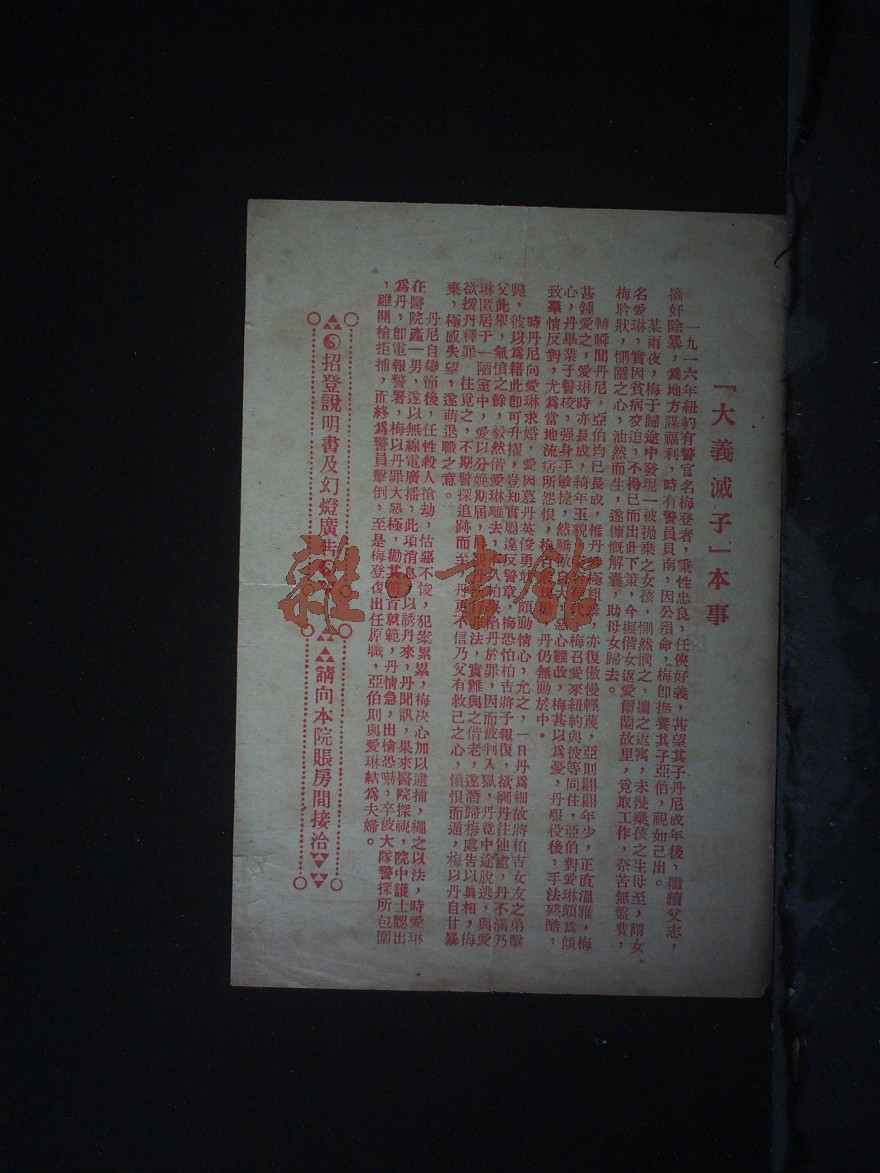 「大義滅子」本事
一九一六年紐約有警官名梅登者，秉性忠良，任俠好義，甚望其子丹尼成年後，繼續父志，
摘奸除暴，爲地方謀福利，時有警員貝南，因公殞命，梅卽撫養其子亞伯，視如己出。
某雨夜，梅于歸途中發現一被拋棄之女孩，惻然憫之，攜之返寓，未幾棄孩之生母至，謂女
名愛琳，實因貧病交迫，不得已而出此下策，今擬偕女返愛爾蘭故里，覓取工作，奈苦無盤費，
梅聆狀，惻隱之心，油然而生，遂慷慨解囊，助母女歸去。
轉瞬間丹尼，亞伯均已長成，惟丹 極粗 亦復傲慢輕蔑，亞則翩翩年少，正直溫雅，梅
甚鍾愛之，愛琳時亦長成，綺年玉貌 梅召愛來紐約與彼等同住，亞伯對愛琳頗爲傾
心，丹畢業于警校，强身手敏捷，然驕傲 惡心難改，梅甚以爲憂，丹服役後，手法殘酷，
致羣情反對，尤爲當地流痞所怨恨，梅 丹仍無動於中。
時丹尼向愛琳求婚，愛因慕丹英俊勇武，頗動情心，允之，一日丹爲細故將柏吉女友之弟擊
斃，彼以爲藉此卽可升擢，豈知實屬違反警章，梅恐怕柏吉將予報復，欲調丹往他處，丹不滿乃
父此舉，氣憤之餘，毅然偕愛琳離去，不久柏 陷丹於罪，因而被判入獄，丹竟中途脫逃，與愛
琳匿居于一陋室中，愛以分娩期屆， 法，實難與之偕老，遂潛歸梅處告以眞相，梅
欲援丹釋罪，往覓之，不期警探追跡而至，丹更不信乃父有救己之心，憤恨而遁，梅以丹自甘暴
棄，極感失望，遂萌退職之意。
丹尼自 節後，任性殺人搶劫，怙惡不悛，犯案累累，梅决心加以逮捕，繩之以法，時愛琳
在醫院產一男，遂以無線電廣播，此項消息 以誘丹來，丹聞訊，果來醫院探視，院中護士認出
爲丹，卽電報警署，梅以丹罪大惡極，勸其 首就範，丹情急，出槍恐嚇，卒被大隊警探所包圍
，雖開槍拒捕，而終爲警員擊倒，至是梅登復出任原職，亞伯則與愛琳結爲夫婦。
招登說明書及幻燈廣告 請向本院賬房間接洽
雜·書館